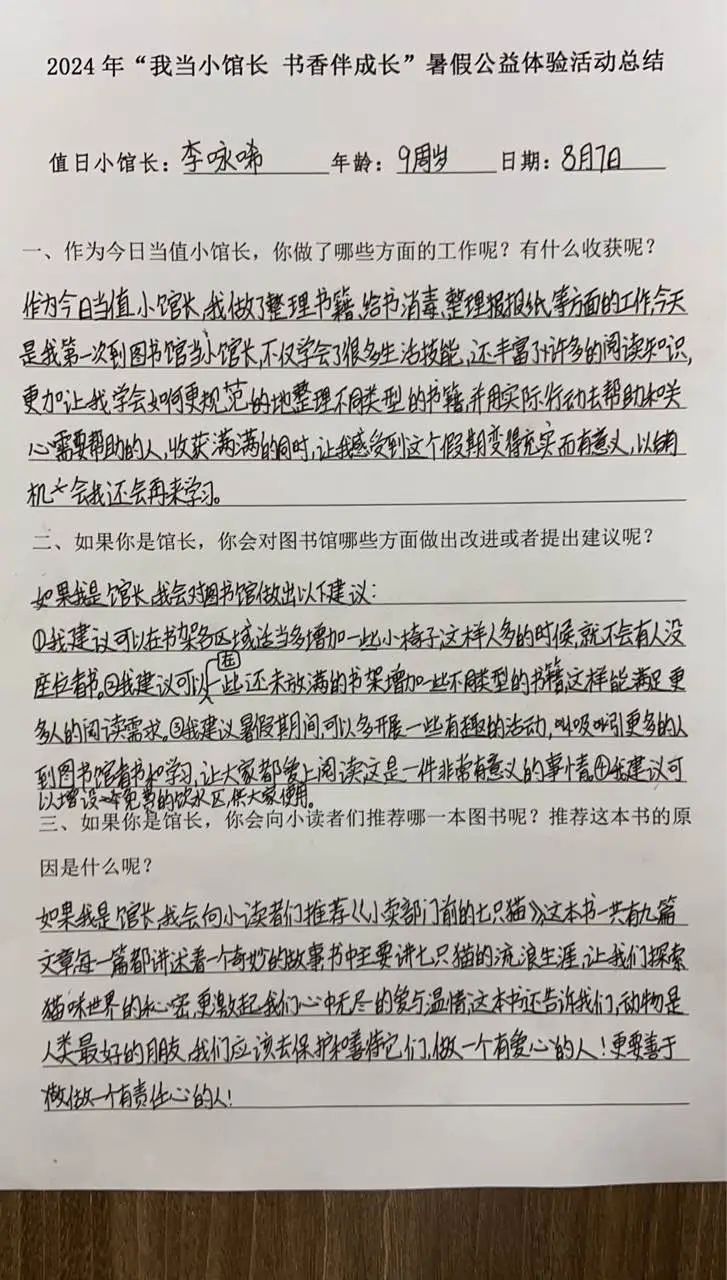 2024年“我当小馆长 书香伴成长”暑假公益体验活动总结
值日小馆长：李咏唏 年龄：9周岁 日期：8月7日
一、作为今日当值小馆长，你做了哪些方面的工作呢？有什么收获呢？
作为今日当值小馆长，我做了整理书籍、给书消毒、整理报报纸等方面的工作，今天
是我第一次到图书馆当小馆长，不仅学会了很多生活技能，还丰富了许多的阅读知识，
更加让我学会如何更规范的地整理不同类型的书籍，并用实际行动去帮助和关
心需要帮助的人，收获满满的同时，让我感受到这个假期变得充实而有意义，以后有
机会我还会再来学习。
二、如果你是馆长，你会对图书馆哪些方面做出改进或者提出建议呢？
如果我是馆长，我会对图书馆做出以下建议：
①我建议可以在书架各区域适当多增加一些小椅子，这样人多的时候，就不会有人没
座位看书。②我建议可以在一些还未放满的书架增加一些不同类型的书籍，这样能满足更
多人的阅读需求。③我建议暑假期间，可以多开展一些有趣的活动，吸吸引更多的人
到图书馆看书和学习，让大家都爱上阅读这是一件非常有意义的事情。④我建议可
以增设一个免费的饮水区，供大家使用。
三、如果你是馆长，你会向小读者们推荐哪一本图书呢？推荐这本书的原
因是什么呢？
如果我是馆长，我会向小读者们推荐《小卖部门前的七只猫》，这本书一共有九篇
文章，每一篇都讲述着一个奇妙的故事，书中主要讲七只猫的流浪生涯，让我们探索
猫咪世界的秘密，更激起我们心中无尽的爱与温情，这本书还告诉我们，动物是
人类最好的朋友，我们应该去保护和善待它们，做一个有爱心的人！更要善于
做做一个有责任心的人！